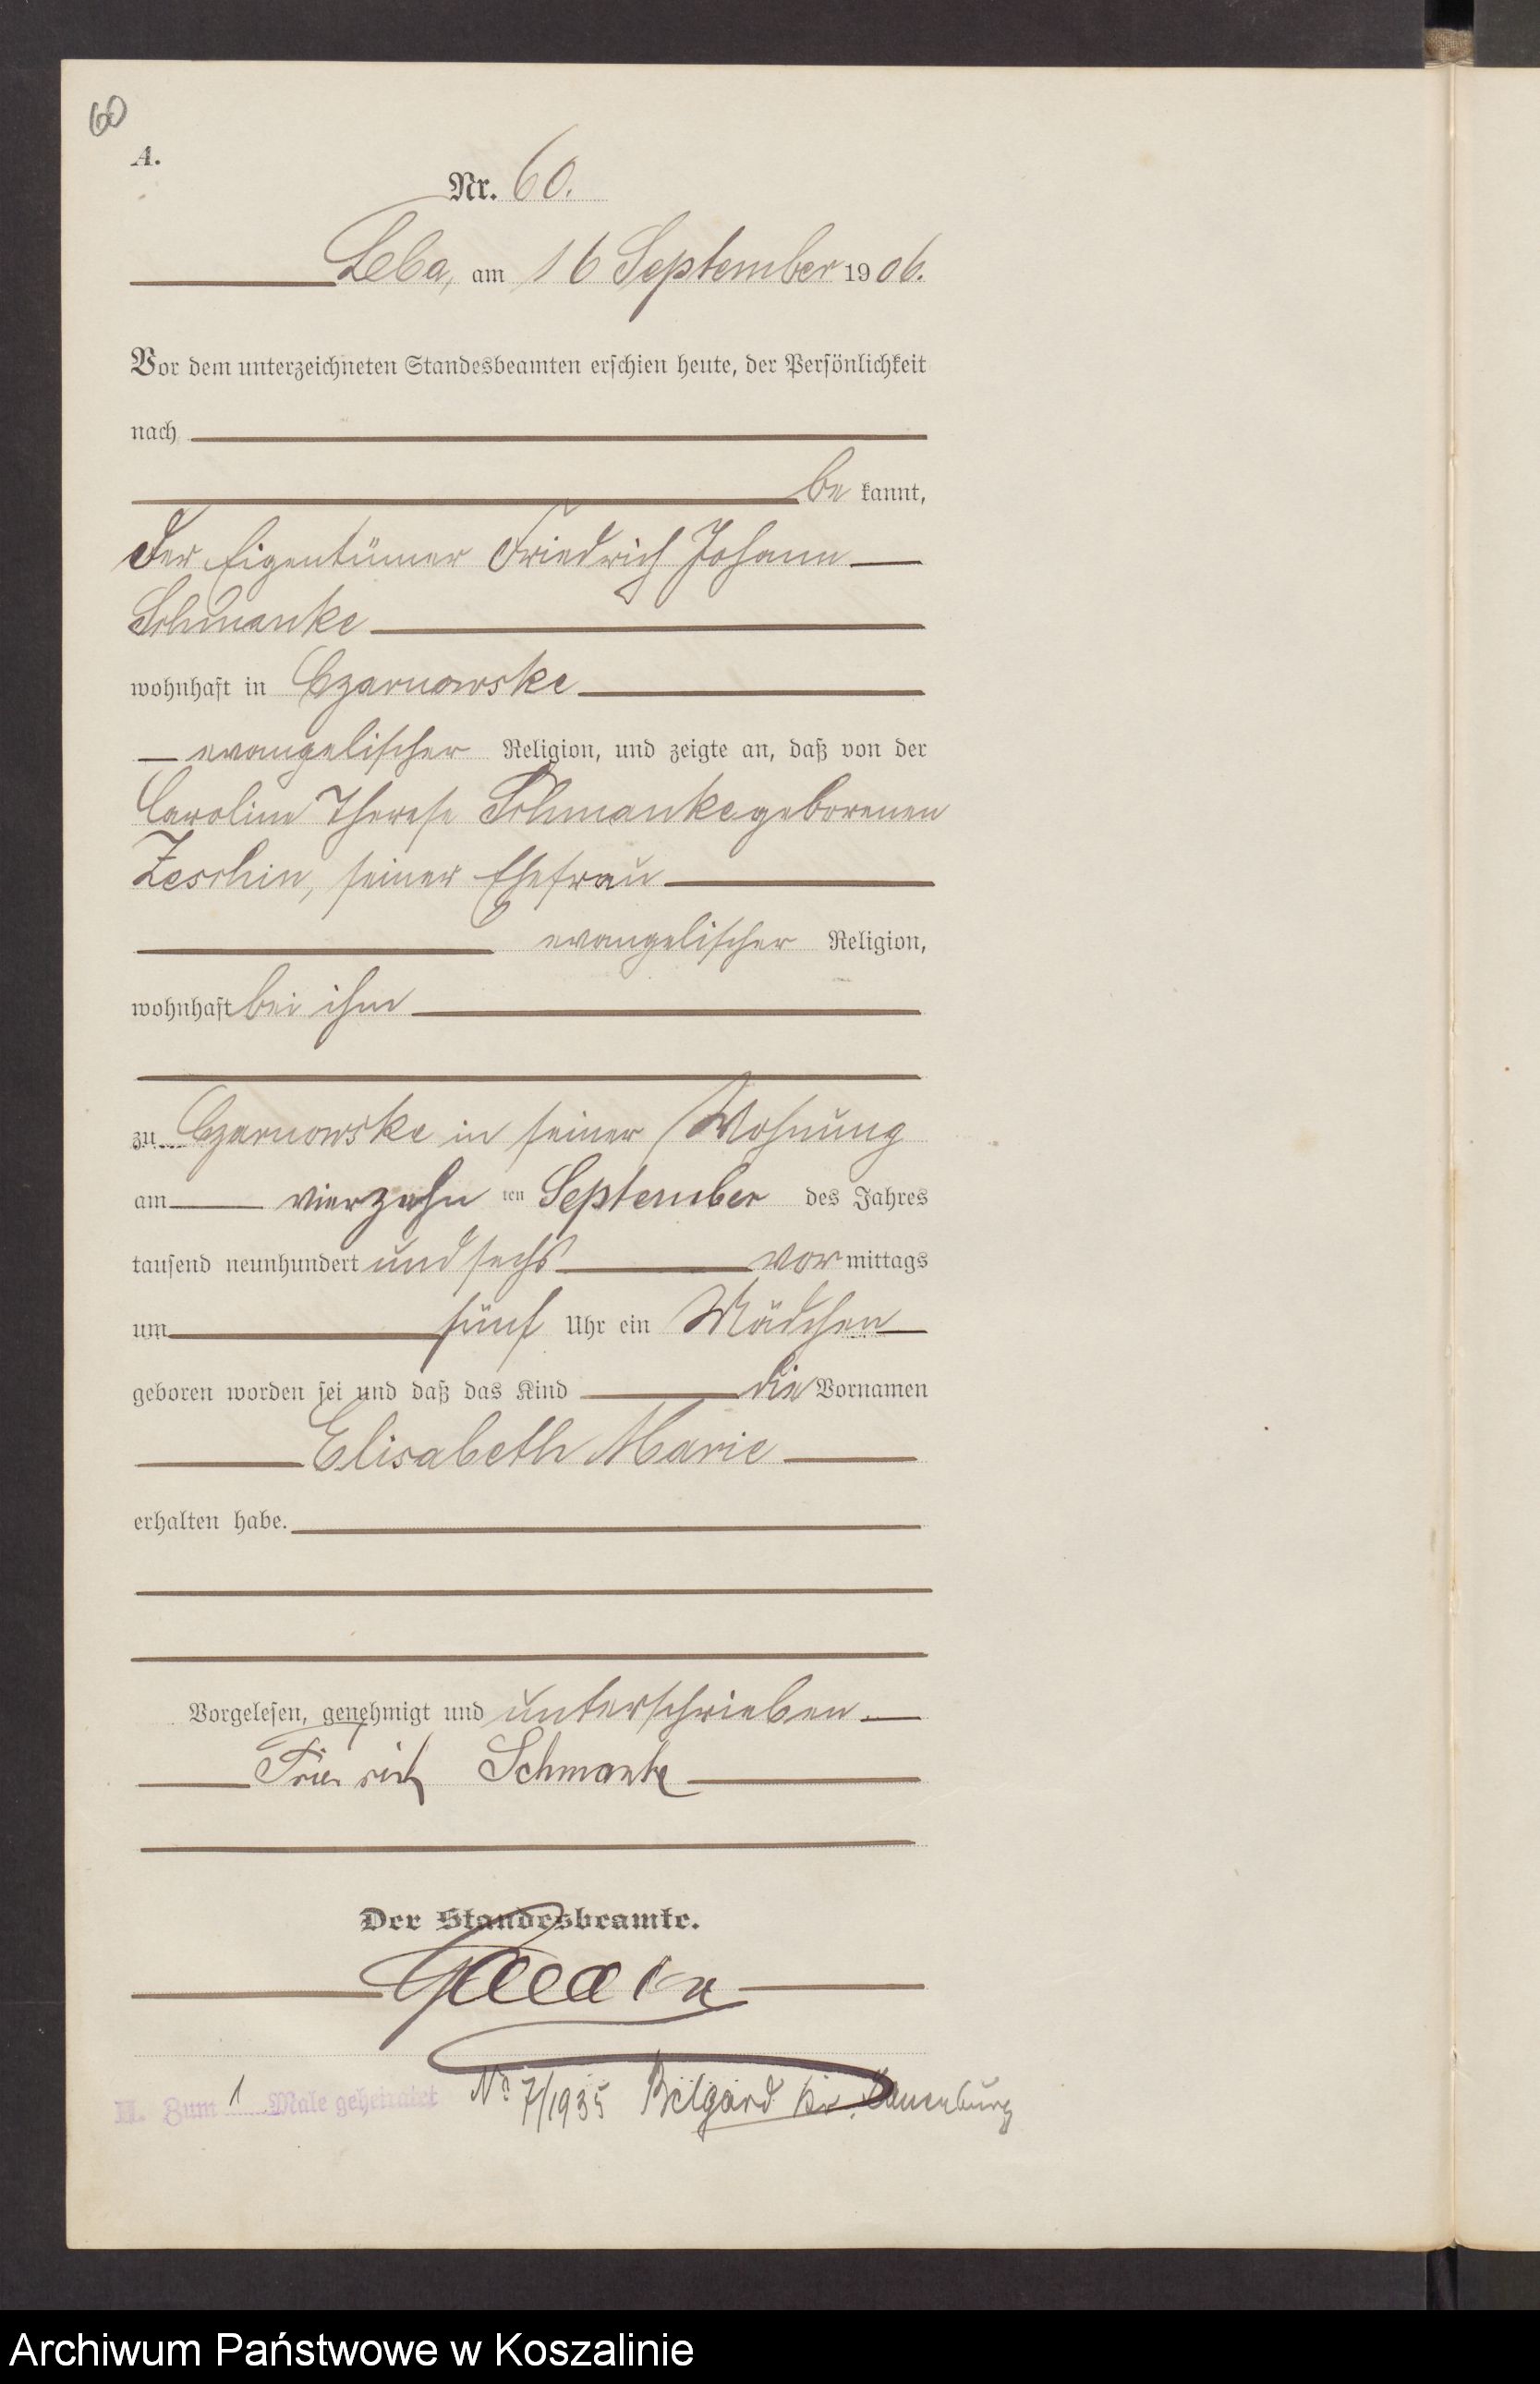 60
A.
Nr. 60.
Leba, am 16 September 1906.
Vor dem unterzeichneten Standesbeamten erschien heute, der Persönlichkeit
nach
be kannt,
der Eigentümer Friedrich Johann
Schmanke
wohnhaft in Czarnowske
evangelischer Religion, und zeigte an, daß von der
Caroline Therese Schmanke geborenen
Zeschin, seiner Ehefrau
evangelischer Religion,
wohnhaft bei ihm
zu Czarnowske in seiner Wohnung
am vierzehn ten September des Jahres
tausend neunhundert und sechs vor mittags
um fünf Uhr ein Mädchen
geboren worden sei und daß das Kind die Vornamen
Elisabeth Marie
erhalten habe.
Vorgelesen, genehmigt und unterschrieben
Friedrich Schmanke
Der Standesbeamte.
II. Zum 1 Male geheiratet No 7/1935 Belgard Kr. Lauenburg
Archiwum Państwowe w Koszalinie